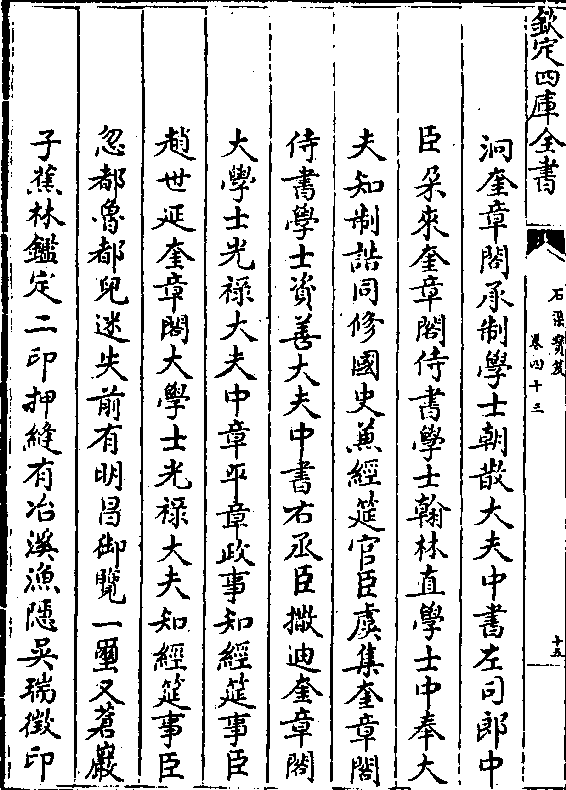 欽定四庫全書
石渠寶笈
卷四十三
十五
洞奎章閣承制學士朝散大夫中書左司郎中
臣朶來奎章閣侍書學士翰林直學士中奉大
夫知制誥同修國史兼經筵官臣虞集奎章閣
侍書學士資善大夫中書右丞臣撒迪奎章閣
大學士光禄大夫中章平章政事知經筵事臣
趙世延奎章閣大學士光禄大夫知經筵事臣
忽都魯都兒迷失前有明昌御覽一璽又蒼巖
子蕉林鑑定二印押縫有冶溪漁隱吳瑞徵印